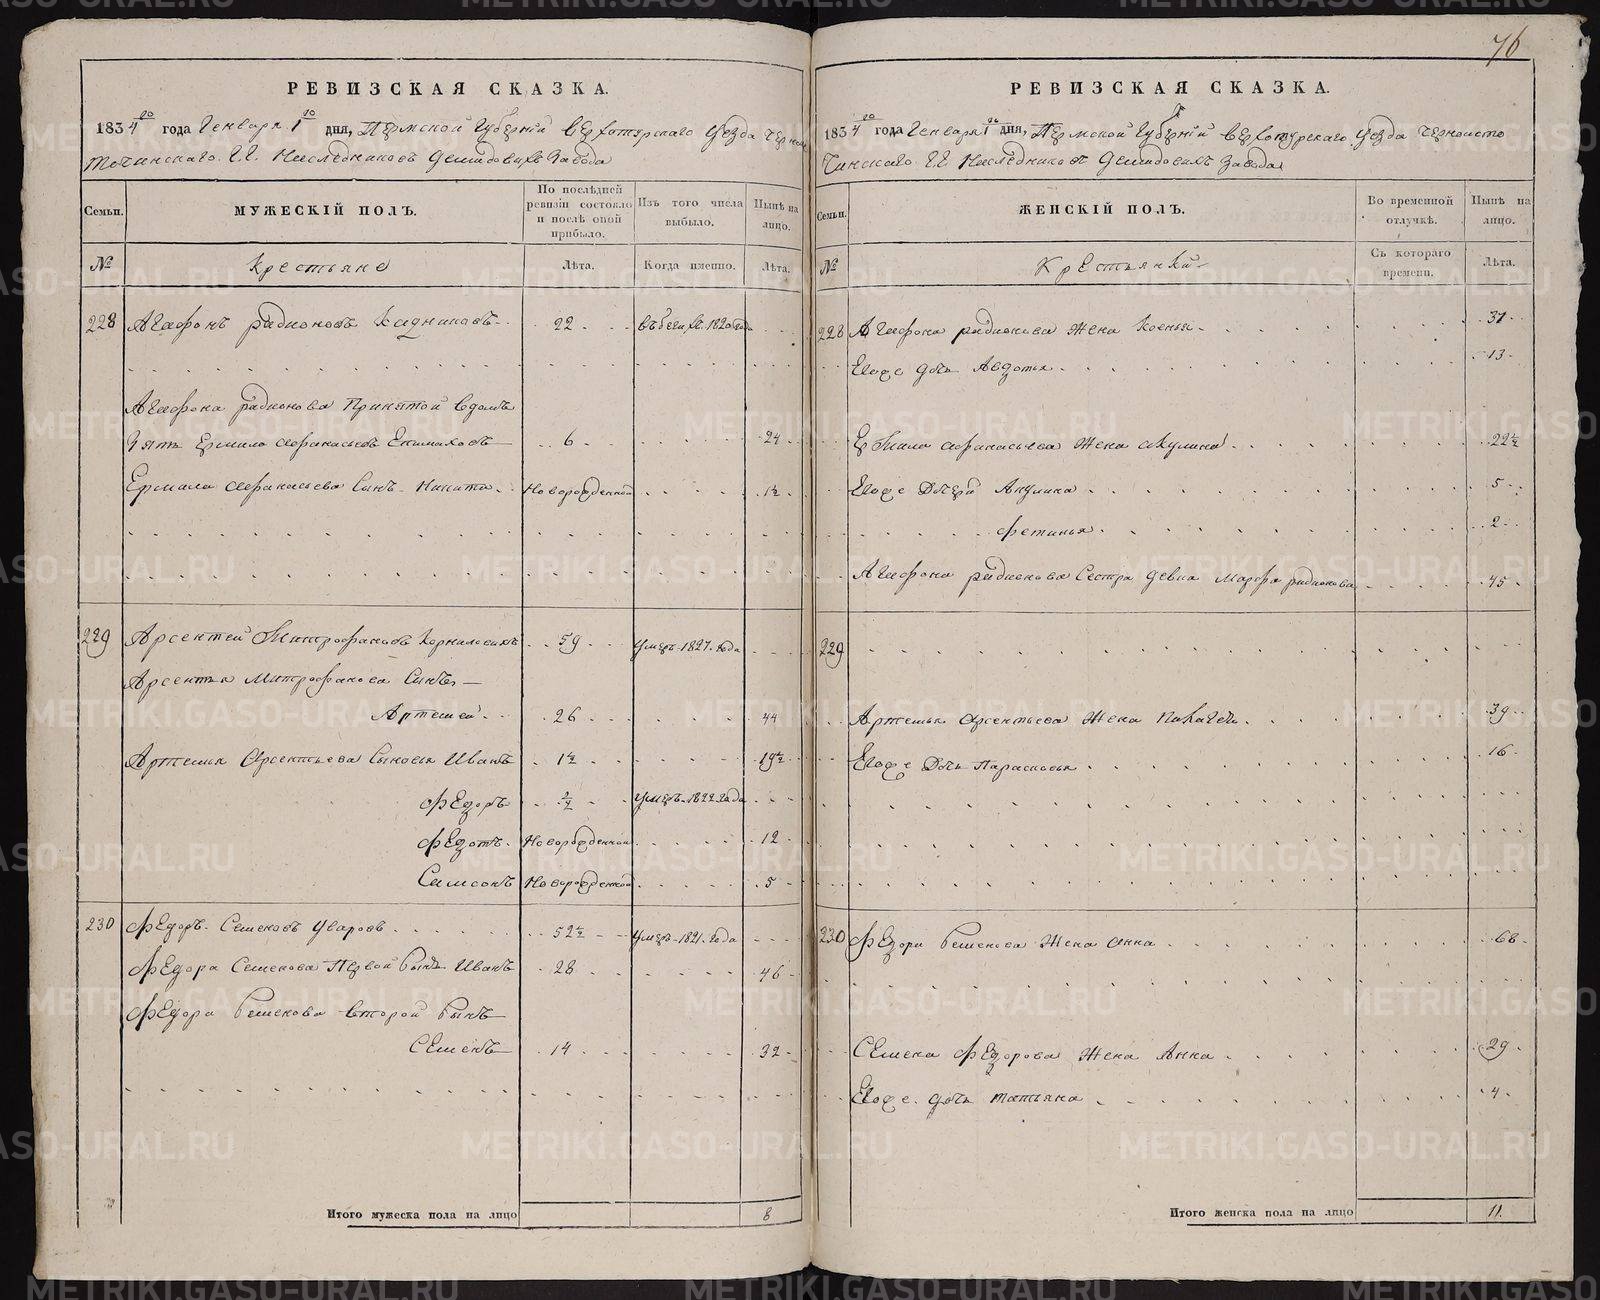 76
РЕВИЗСКАЯ СКАЗКА.
1834го года Генваря 1го дня, Пермской Губернiи Верхотурскаго Уезда Черно
источинскаго Г.Г. Наследниковъ Демидовыхъ Завода
Семьи.
МУЖЕСКIЙ ПОЛЪ.
По послѣдней ревизiи состояло и послѣ оной прибыло.
Изъ того числа выбыло.
Нынѣ на лицо.
№
Крестьяне
Лѣта.
Когда именно.
Лѣта.
228 Агафонъ радионовъ Кадниковъ 22 въ бегахъ 1820 года
Агафона радионова Принятой в домъ
Зять Ермило афанасьевъ 6 24
Ермила афанасьева Сынъ Никита Новорожденной 1½
229 Арсентей Митрофановъ Корниловыхъ 59 умеръ 1827 года
Арсентья Митрофанова Сынъ
Артемей 26 44
Артемья Арсентьева Сыновья Иванъ 1½ 19½
Федоръ умеръ 1822 года
Федотъ Новорожденной 12
Самсонъ Новорожденной 5
230 Федоръ Семеновъ Уваровъ 52½ умеръ 1821 года
Федора Семенова Первой Сынъ Иванъ 28 46
Федора Семенова второй Сынъ
Семенъ 14 32
Итого мужеска пола на лицо 8
РЕВИЗСКАЯ СКАЗКА.
1834го года Генваря 1го дня, Пермской Губернiи Верхотурскаго Уезда Черноисто
чинскаго Г.Г. Наследниковъ Демидовыхъ Завода
Семьи.
ЖЕНСКIЙ ПОЛЪ.
Во временной отлучкѣ.
Нынѣ на лицо.
№
Крестьянки
Съ котораго времени.
Лѣта.
228 Агафона радионова жена Ксенья 37
Ево же дочь Авдотья 13
Ермила афанасьева жена акулина 22½
Ево же Дочери Акулина 5
Фетинья 2
Агафона радионова Сестра девка Марфа радионова 45
229
Артемья арсентьева Жена Пилагея 39
Ево же Дочь Парасковья 16
230 Федора Семенова Жена анна 68
Семена Федорова Жена Анна 29
Ево же дочь татьяна 4
Итого женска пола на лицо 11.
METRIKI.GASO-URAL.RU